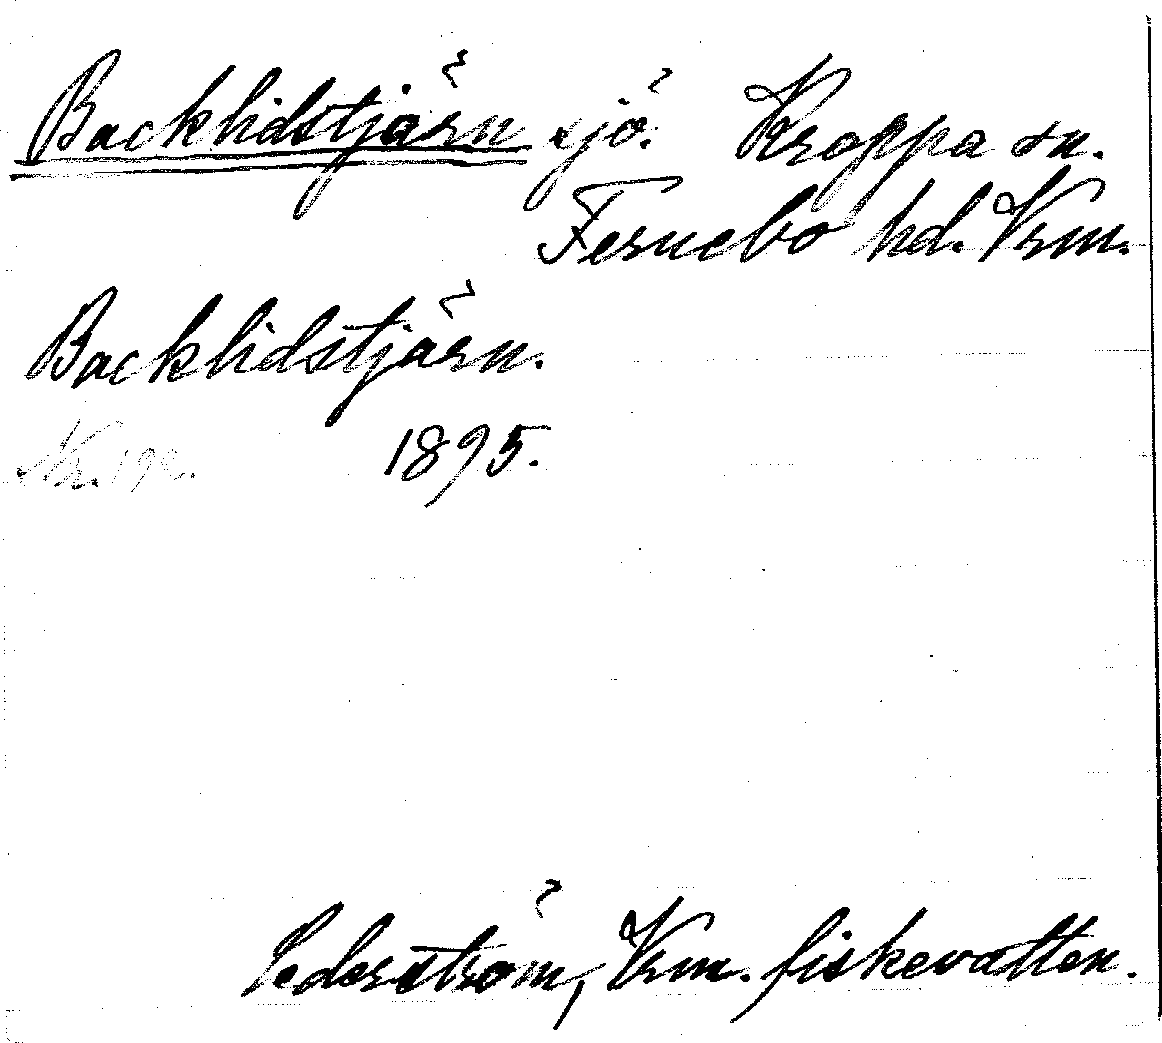 Backlidstjärn sjö. Kroppa sn.
Fernebo hd. Vrm.
Backlidstjärn.
Nr. 1895.
Cederström, Vrm. fiskevatten.